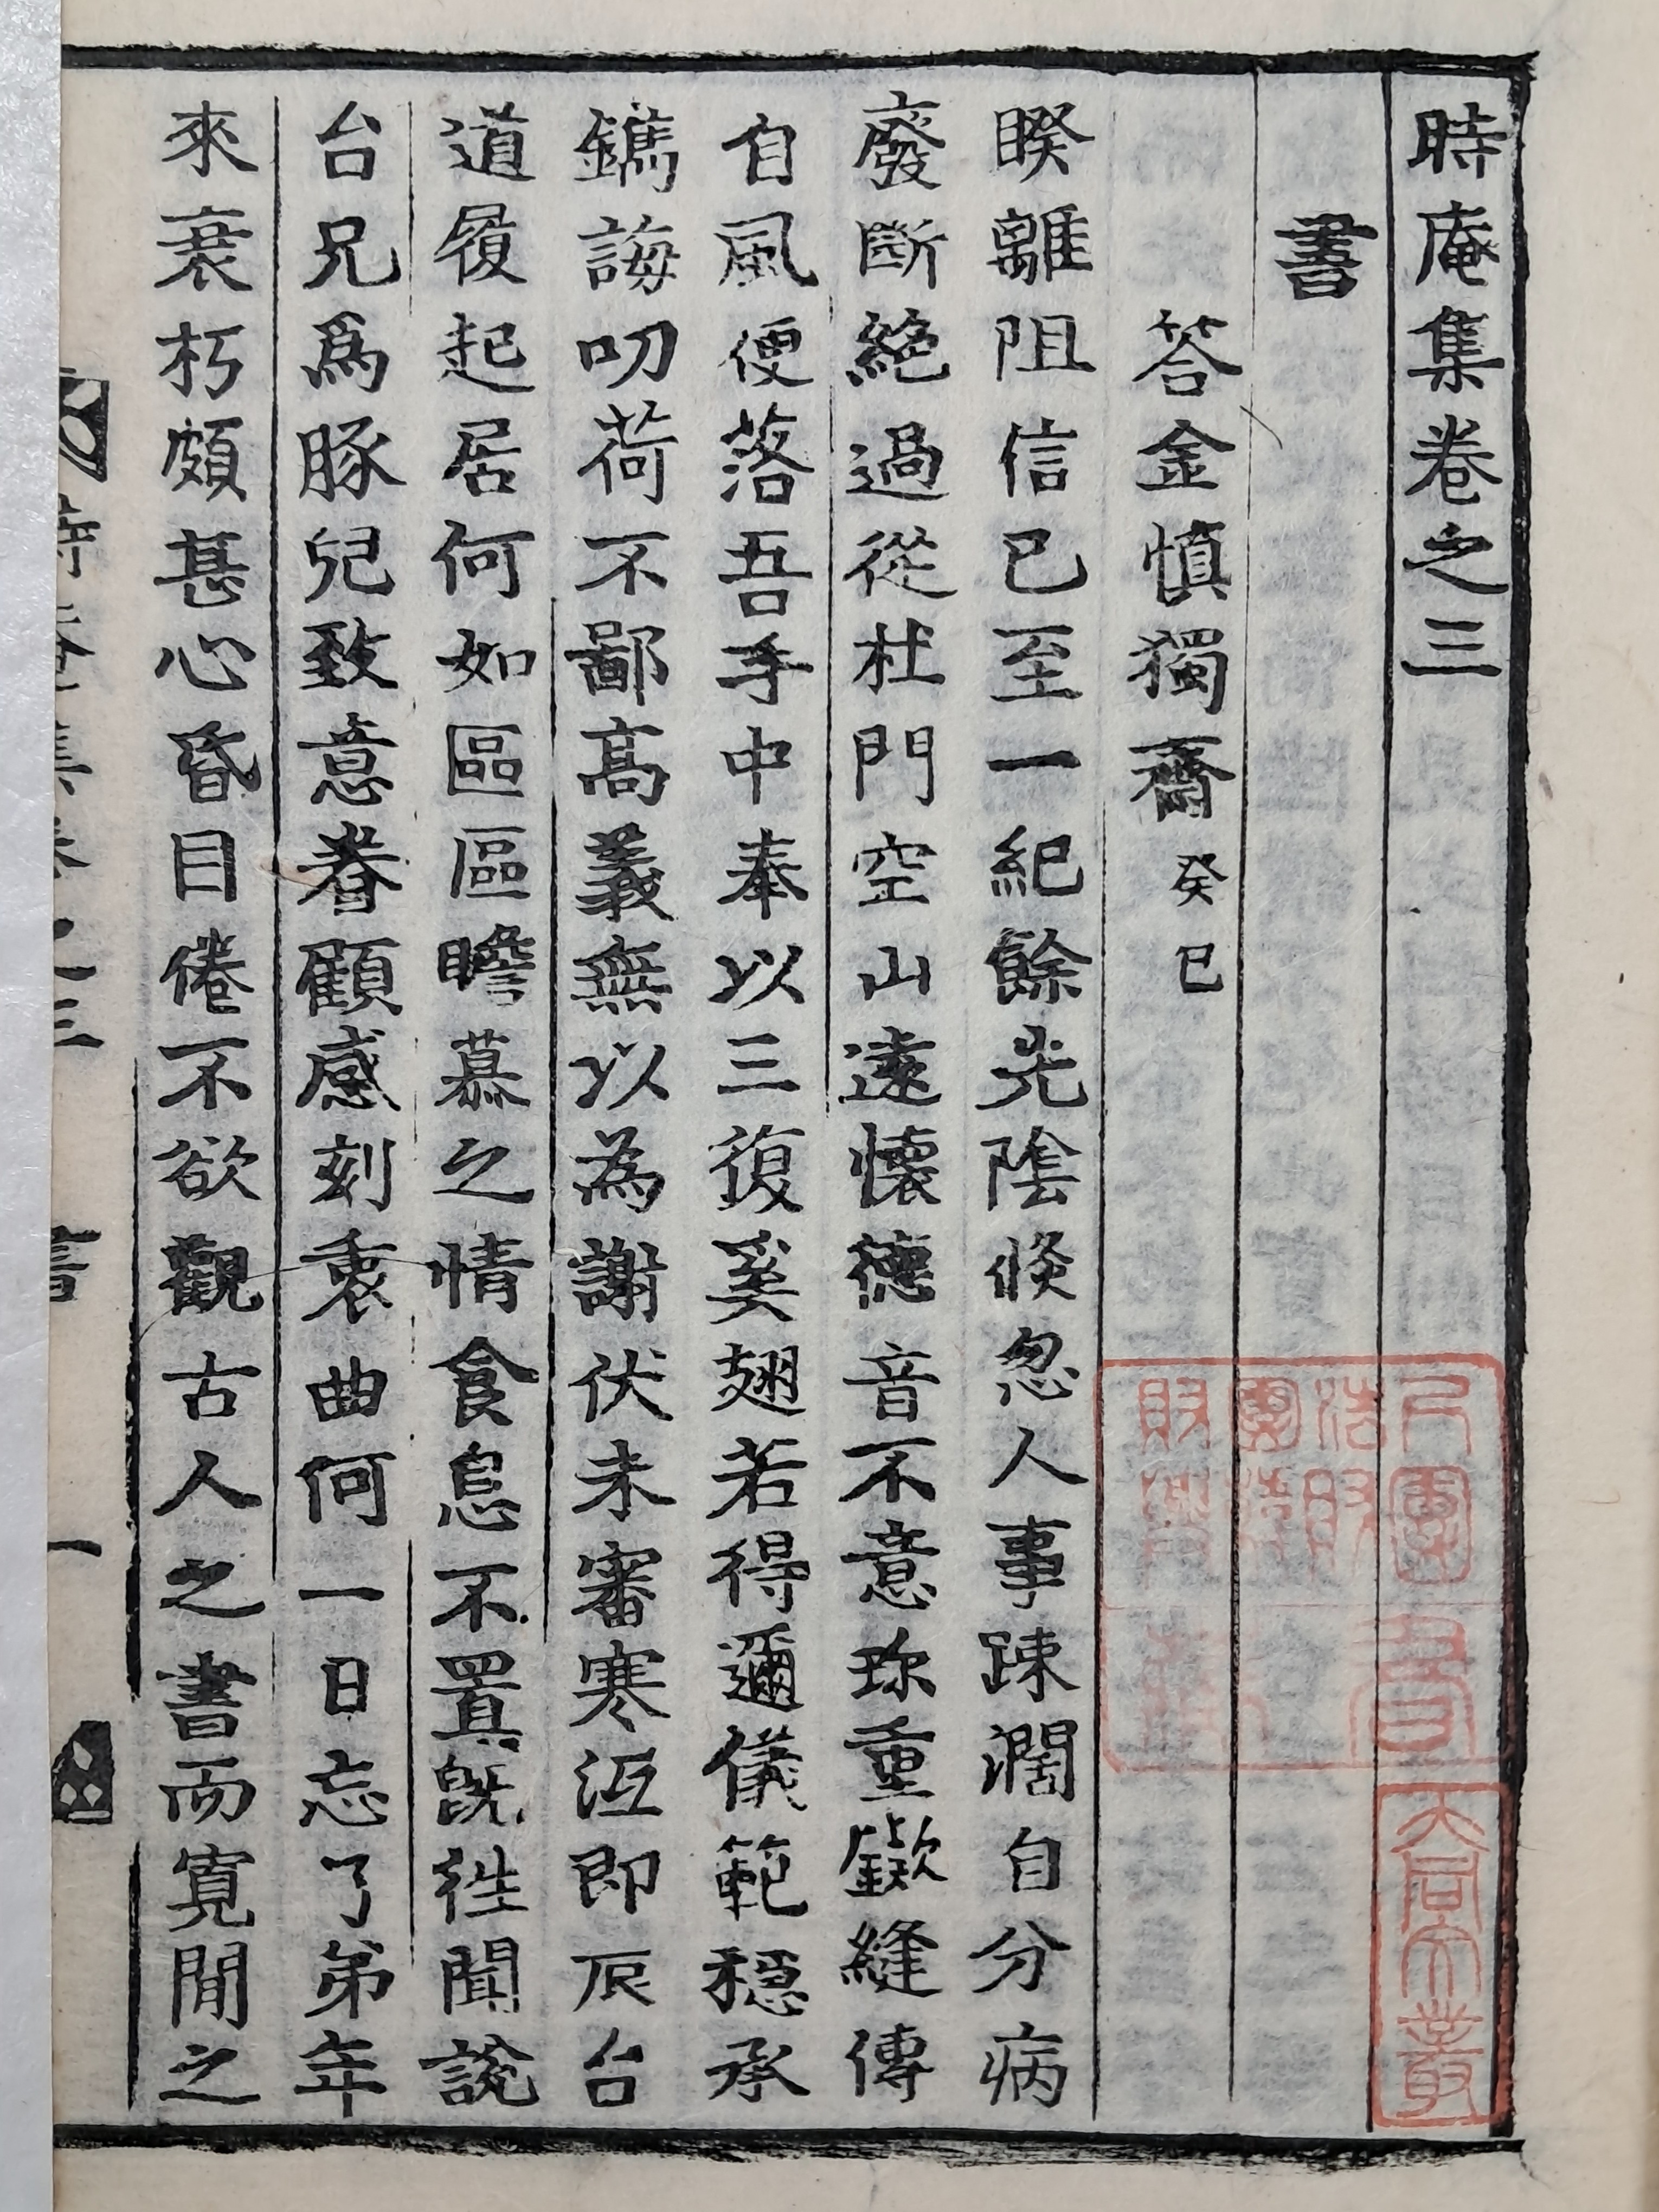 時庵集卷之三
書
答金愼獨齋 癸巳
睽離阻信已至一紀餘光陰倐忽人事踈濶自分病
廢斷絶過從杜門空山遠懷德音不意珎重鏉縫傳
自風便落吾手中奉以三復奚翅若得邇儀範穩承
鐫誨叨荷不鄙高義無以為謝伏未審寒沍即辰台
道履起居何如區區瞻慕之情食息不置旣徃聞說
台兄爲豚兒致意眷顧感刻衷曲何一日忘了弟年
來衰朽頗甚心昏目倦不欲觀古人之書而寬閒之
時庵集卷之三
書
一